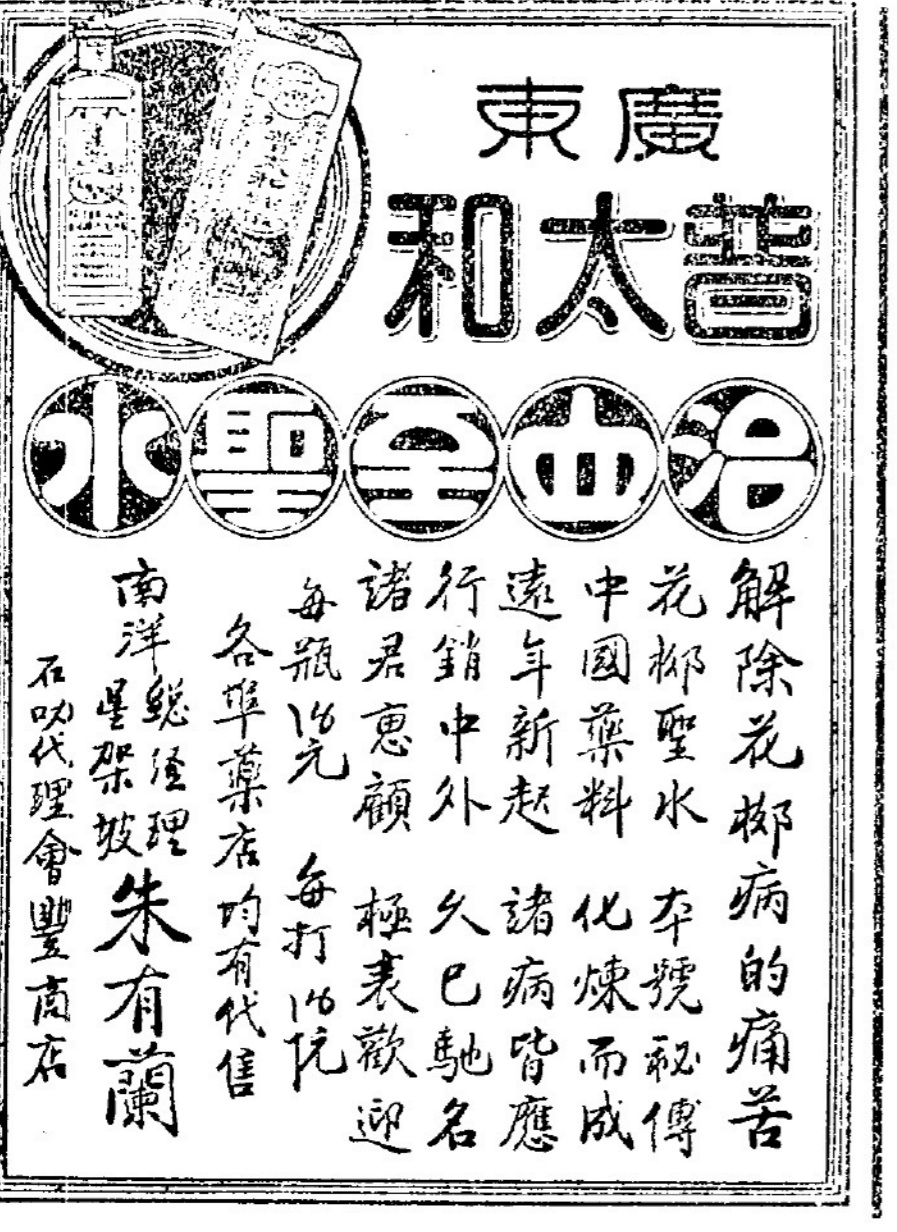 廣東
普太和
治至聖水
解除花柳病的痛苦
花柳聖水 本號秘傳
中國藥料 化煉而成
遠年新起 諸病皆應
行銷中外 久已馳名
諸君惠顧 極表歡迎
每瓶元 每打
各埠藥店均有代售
南洋總經理星架坡朱有蘭
石叻代理會豐商店